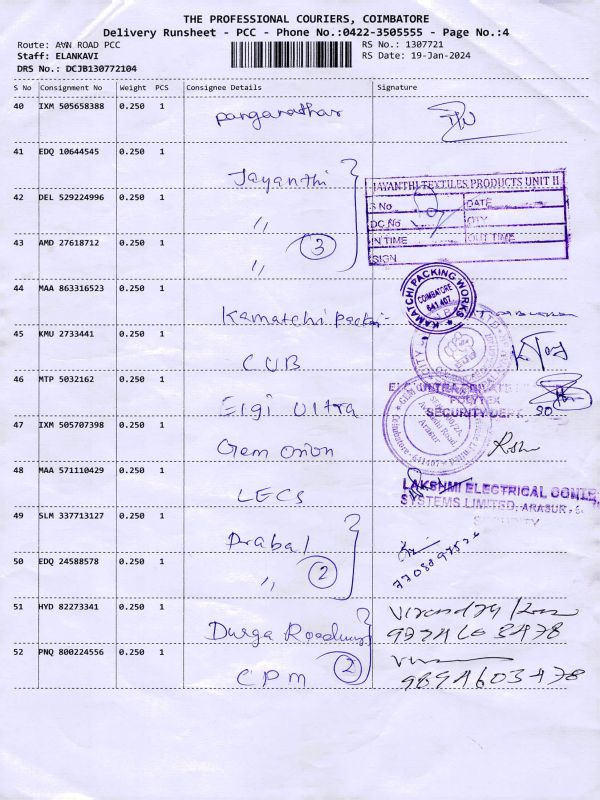 THE PROFESSIONAL COURIERS, COIMBATORE
Delivery Runsheet - PCC - Phone No.:0422-3505555 - Page No.:4
Route: AVN ROAD PCC
RS No.: 1307721
Staff: ELANKAVI
RS Date: 19-Jan-2024
DRS No.: DCJB130772104
S No Consignment No Weight PCS Consignee Details Signature
40 IXM 505658388 0.250 1
41 EDQ 10644545 0.250 1 Jayanthi
42 DEL 529224996 0.250 1 "
43 AMD 27618712 0.250 1 " 3
JAYANTHI TEXTILES PRODUCTS UNIT II
S No DATE
DC No QTY
IN TIME OUT TIME
SIGN
44 MAA 863316523 0.250 1 Kamatchi
KAMATCHI PACKING WORKS
COIMBATORE
641 407
45 KMU 2733441 0.250 1 CUB
46 MTP 5032162 0.250 1 Elgi Ultra
SECURITY DEPT
47 IXM 505707398 0.250 1 Gem Orion
Arasur
641407
48 MAA 571110429 0.250 1 LECS
LAKSHMI ELECTRICAL
SYSTEMS LIMITED, ARASUR
SECURITY
49 SLM 337713127 0.250 1 Prabal
50 EDQ 24588578 0.250 1 " 2
51 HYD 82273341 0.250 1 Durga
52 PNQ 800224556 0.250 1 CPM 2
9894603478